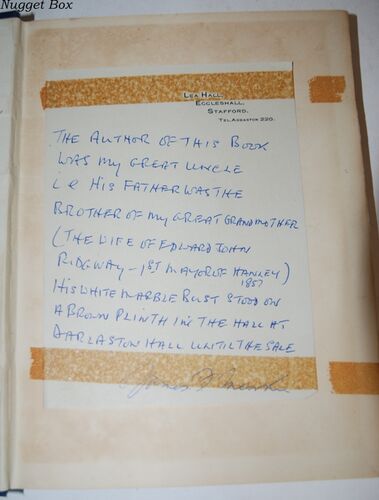 Nugget Box
LEA HALL,
ECCLESHALL,
STAFFORD.
TEL. ADBASTON 220.
THE AUTHOR OF THIS BOOK
WAS MY GREAT UNCLE
i e HIS FATHER WAS THE
BROTHER OF MY GREAT GRANDMOTHER
(THE WIFE OF EDWARD JOHN
RIDGWAY - 1ST MAYOR OF HANLEY)
1857
HIS WHITE MARBLE BUST STOOD ON
A BROWN PLINTH IN THE HALL AT
DARLASTON HALL UNTIL THE SALE
James